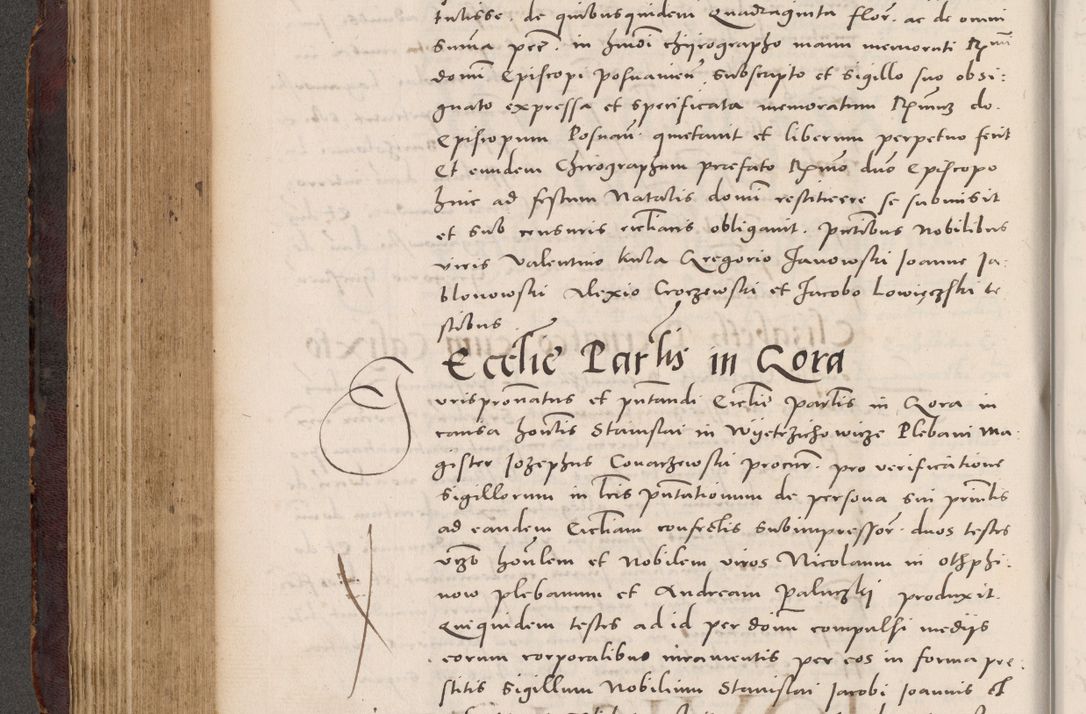 tulisse. de quibusquidem Quadraginta flor. ac de omni
Suma pce. in hmoi chyrographo manu memorati Rmi
domi Episcopi posnanien Subscripto et Sigillo suo obsi:
gnato expressa et specificata memoratum Rmum do.
Episcopum Posnan. quietauit et liberum perpetuo fecit
Et eundem Chirographum præfato Rmo dno Episcopo
hinc ad festum Natalis domi restituere se submisit
et sub censuris ecclasticis obligauit. Pntibus Nobilibus
viris Valentino Kula Gregorio Janowski Ioanne Ia:
blonowski Alexio Croczewski et Jacobo Lowięczski te
stibus
Ecclie Parlis in Gora
Jurispronatus et pntandi Ecclie parlis in Gora in
causa hontis Stanislai in Wyetrzichowicze Plebani Ma
gister Iozephus Conarzewski procur. pro verificatione
Sigillorum in lris pntationum de persona sui prinlis
ad eandem Eccliam confectis Subimpressor. duos testes
vizt honlem et Nobilem viros Nicolaum in othphi:
now plebanum et Andream Paluczki produxit.
Quiquidem testes ad id per dom compulsi medijs
eorum corporalibus iuramentis per eos in forma pre:
stitis Sigillum Nobilium Stanislai Jacobi Joannis et